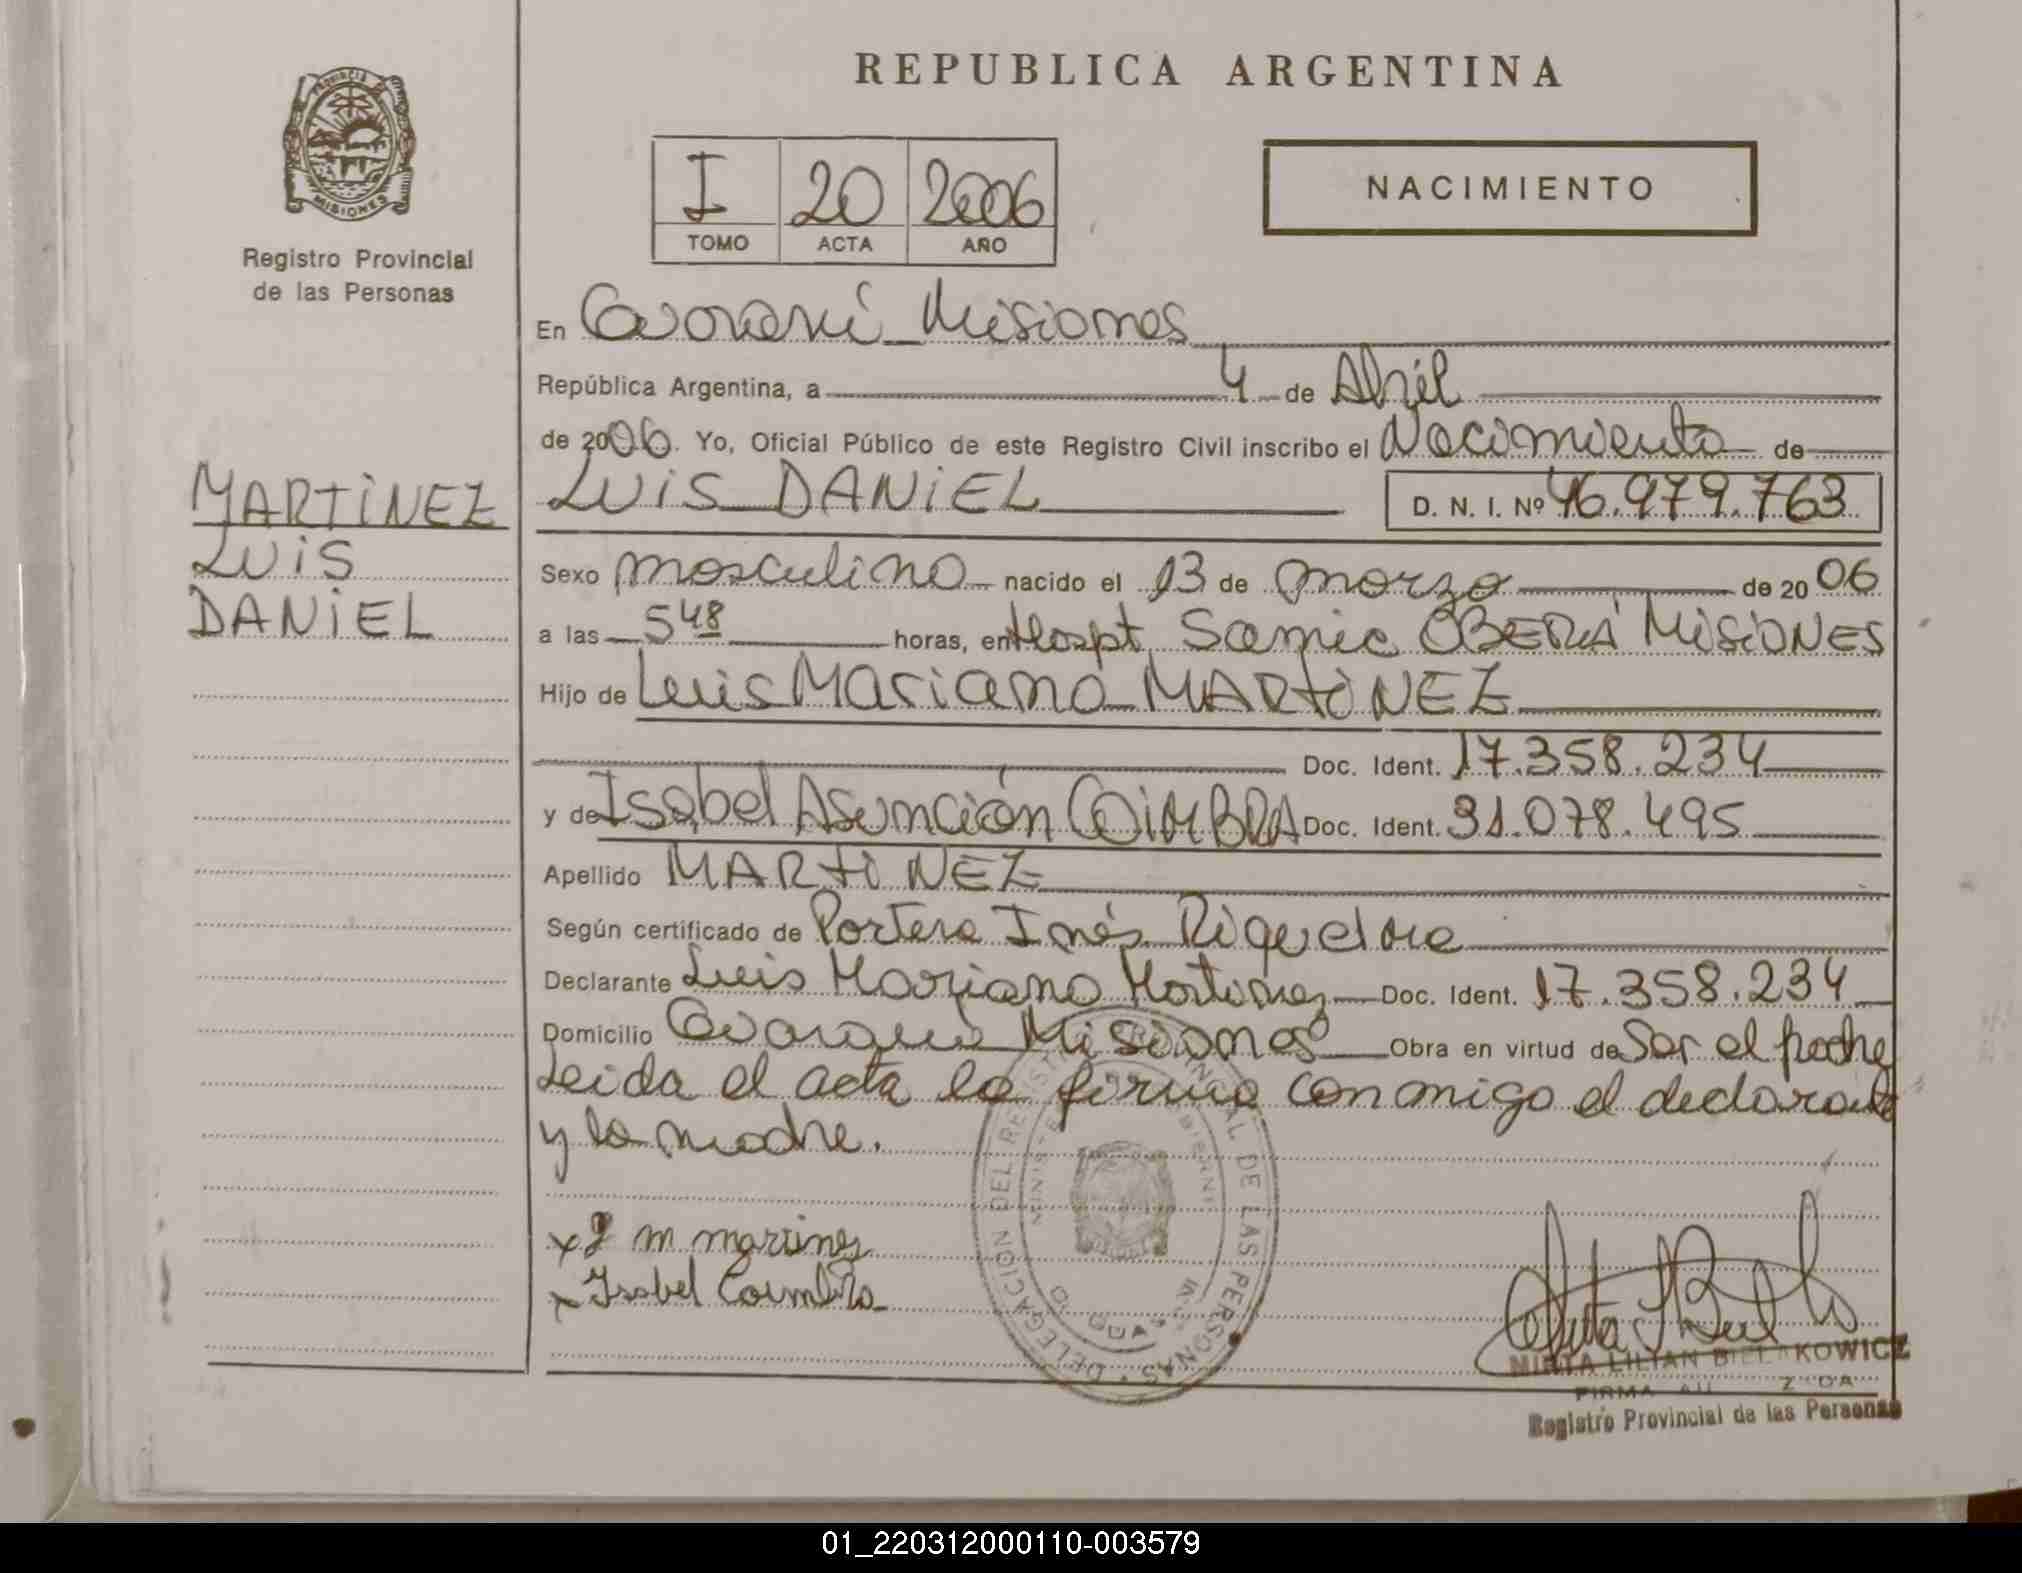 REPUBLICA ARGENTINA
PROVINCIA
MISIONES
Registro Provincial
de las Personas
I 20 2006
TOMO ACTA AÑO
NACIMIENTO
En Guaraní Misiones
República Argentina, a 4 de Abril
de 2006. Yo, Oficial Público de este Registro Civil inscribo el Nacimiento de
LUIS DANIEL D. N. I. Nº 46.979.763
MARTINEZ
LUIS
DANIEL
Sexo masculino nacido el 13 de marzo de 2006
a las 5 48 horas, en Hospt. Samic OBERÁ MISIONES
Hijo de Luis Mariano MARTINEZ
Doc. Ident. 17.358.234
y de Isabel Asunción COIMBRA Doc. Ident. 31.078.495
Apellido MARTINEZ
Según certificado de Partera Inés Riquelme
Declarante Luis Mariano Martinez Doc. Ident. 17.358.234
Domicilio Guaraní Misiones Obra en virtud de Ser el padre
Leida el acta la firma conmigo el declarante
y la madre.
x L m martinez
x Isabel Coimbra
DELEGACIÓN DEL REGISTRO PROVINCIAL DE LAS PERSONAS
MIRTA LILIAN BIELAKOWICZ
FIRMA AUTORIZADA
Registro Provincial de las Personas
01_220312000110-003579